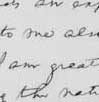 as an exp
to me also
I am great
the nat